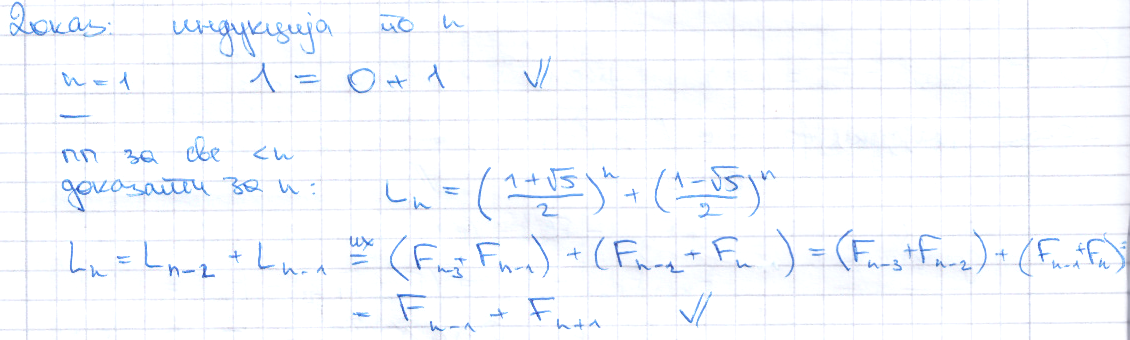 Доказ: индукција по n
n = 1 1 = 0 + 1 √/
—
пп за све < n
доказати за n: Lₙ = ((1+√5)/2)ⁿ + ((1-√5)/2)ⁿ
Lₙ = Lₙ₋₂ + Lₙ₋₁ =^{их} (Fₙ₋₃ + Fₙ₋₁) + (Fₙ₋₂ + Fₙ) = (Fₙ₋₃ + Fₙ₋₂) + (Fₙ₋₁ + Fₙ) =
= Fₙ₋₁ + Fₙ₊₁ √/